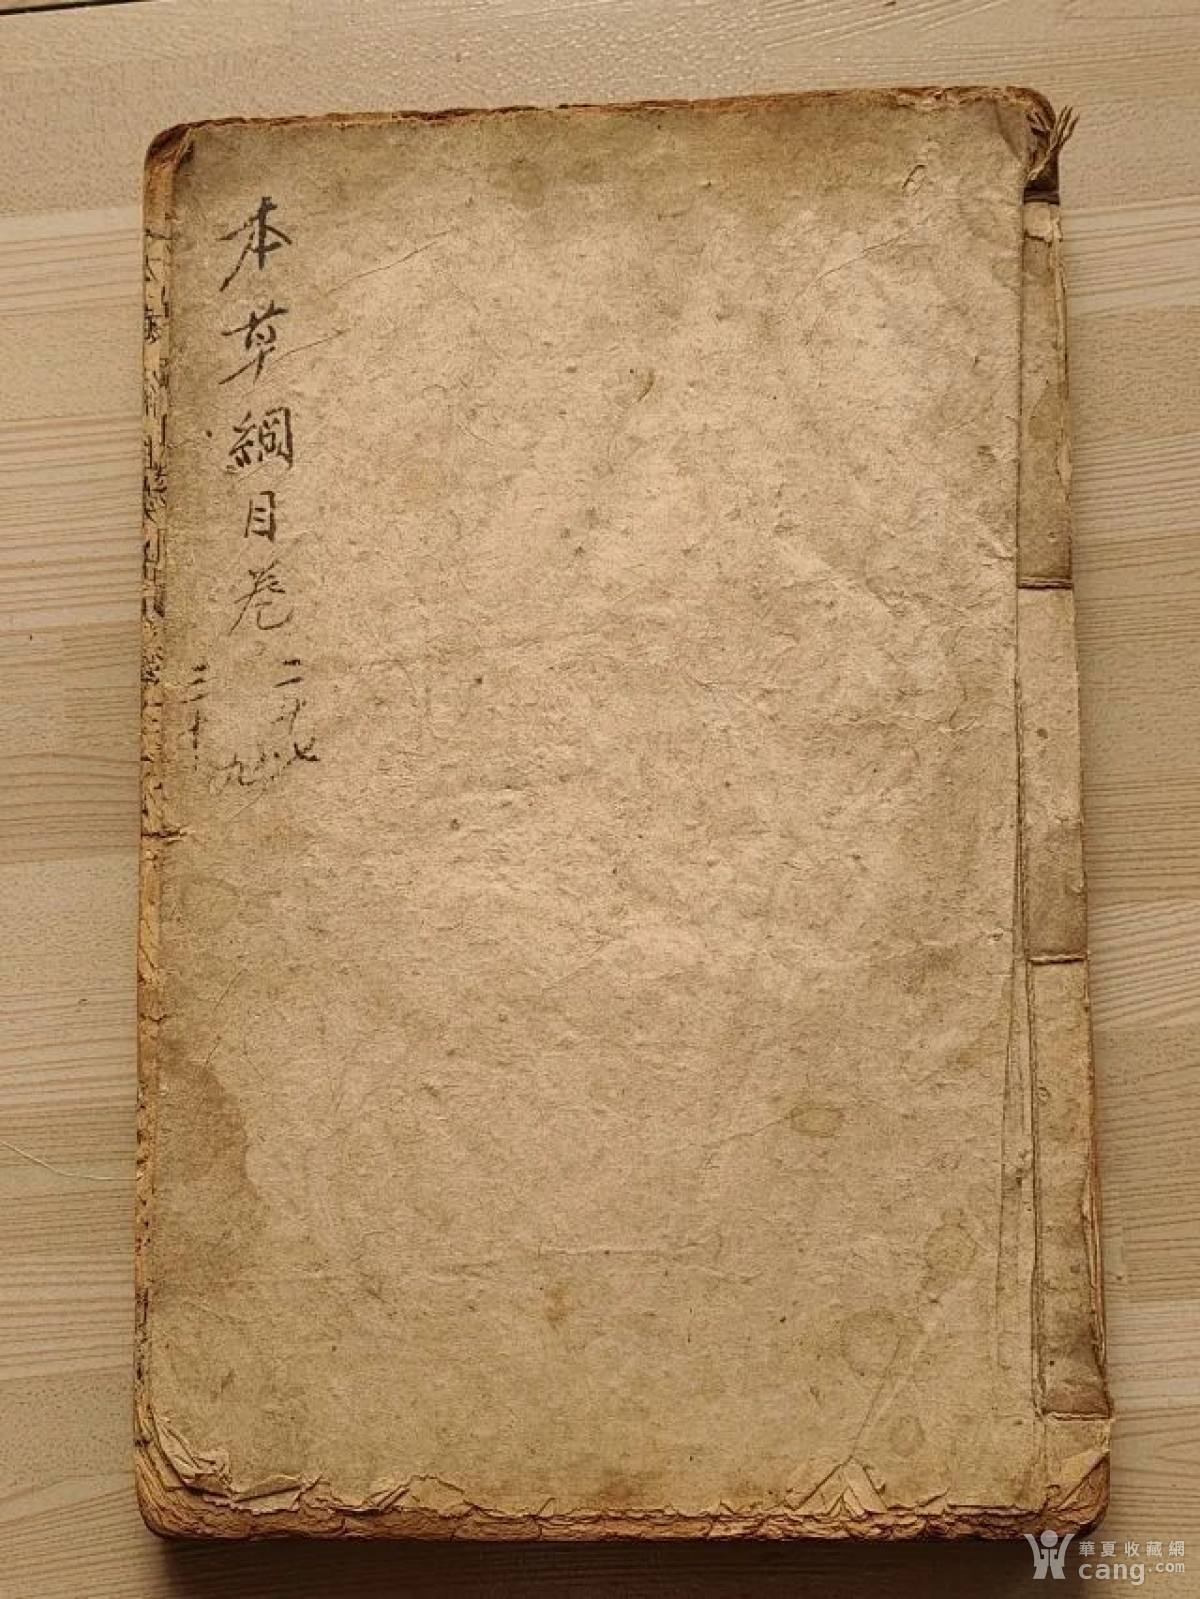 本草綱目卷
二十七
八
九
三十
華夏收藏網
cang.com